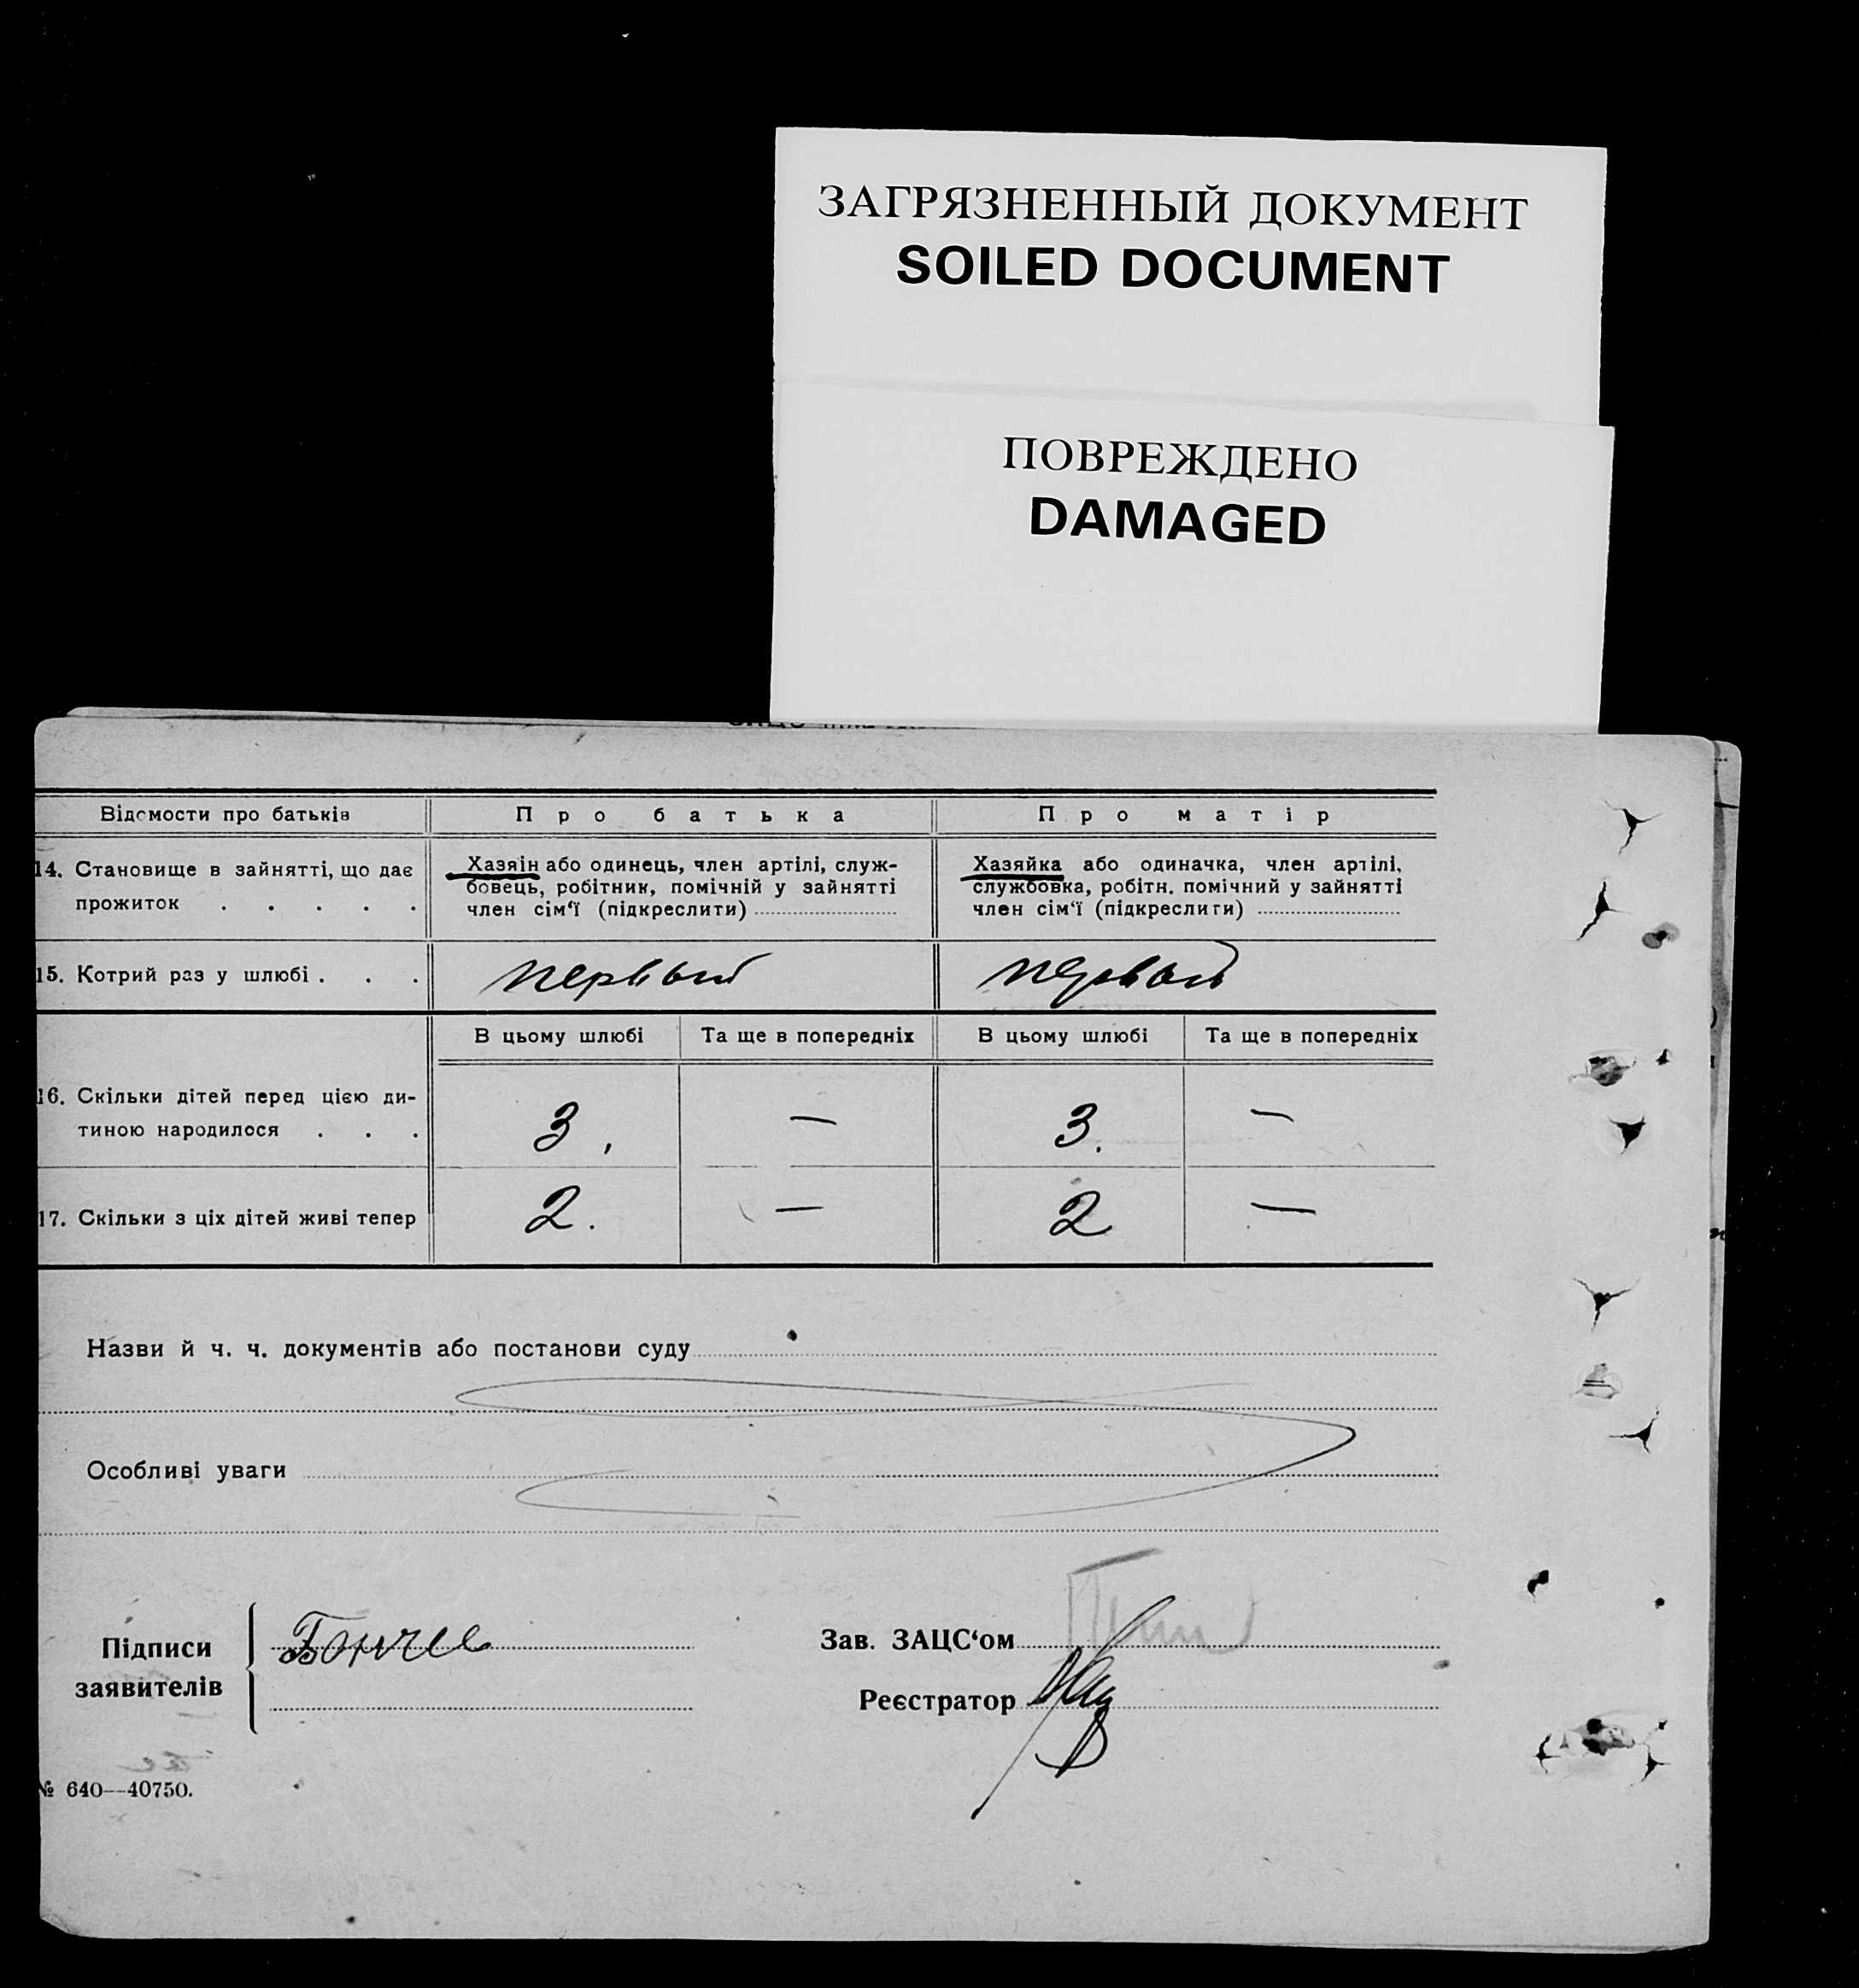 ЗАГРЯЗНЕННЫЙ ДОКУМЕНТ
SOILED DOCUMENT
ПОВРЕЖДЕНО
DAMAGED
Відомости про батьків
Про батька
Про матір
14. Становище в зайнятті, що дає
прожиток . . . . .
Хазяін або одинець, член артілі, служ-
бовець, робітник, помічній у зайнятті
член сім‘ї (підкреслити)
Хазяйка або одиначка, член артілі,
службовка, робітн. помічний у зайнятті
член сім‘ї (підкреслити)
15. Котрий раз у шлюбі . . .
первый
первый
В цьому шлюбі
Та ще в попередніх
В цьому шлюбі
Та ще в попередніх
16. Скільки дітей перед цією ди-
тиною народилося . . .
3,
—
3.
—
17. Скільки з ціх дітей живі тепер
2.
—
2
—
Назви й ч. ч. документів або постанови суду
Особливі уваги
Підписи
заявителів
Зав. ЗАЦС‘ом
Реєстратор
№ 640—40750.